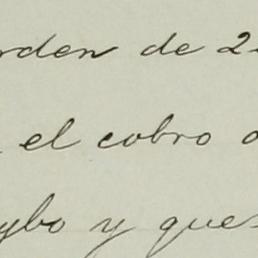 rden de 2
el cobro
ybo y que